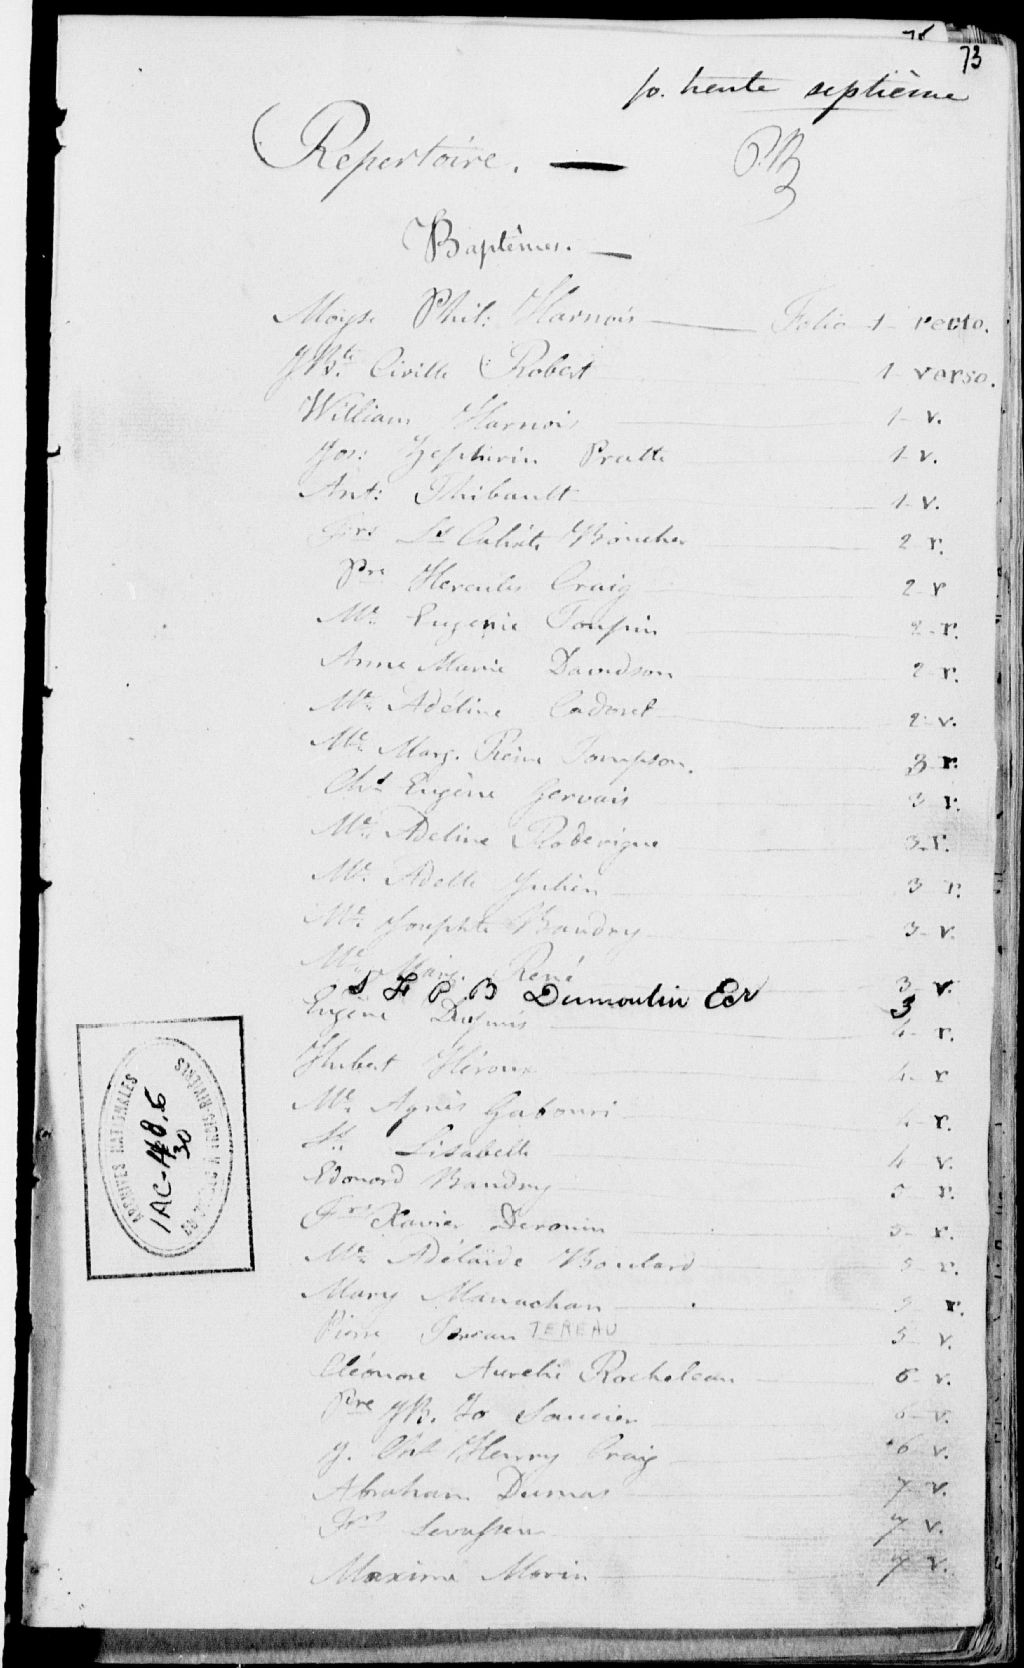 73
fo. trente septième
Repertoire. — P.B
Baptêmes. —
Moyse Phil: Harnois — Folio 1 recto.
J Bte. Civille Robert 1 verso.
William Harnois 1 v.
Jos: Zephirin Pratte 1 v.
Ant: Thibault 1 v.
Frs Ls Calixte Boucher 2 r.
Pre Hercules Craig 2 r
Me. Eugenie Toupin 2 r.
Anne Marie Davidson 2 r.
Me. Adéline Cadoret 2 v.
Me. Marg. Reine Tompson. 3 r.
Chs Eugène Gervais 3 r.
Me. Adeline Roderigue 3 r.
Me. Adelle Julien 3 r.
Me. Josephte Baudry 3 v.
Me. Marg. René 3 v.
S F P B Dumoulin Ecr 3
Eugène Dufrais 4 r.
Hubert Héroux 4 r
Me. Agnès Gabouri 4 r.
Lisabelle 4 v.
Edouard Baudry 5 r.
Frs Xavier Derouin 5 r.
Me. Adélaïde Boulard 5 r.
Mary Manachan 5 r.
Pierre Tereau TEREAU 5 v.
Eléonore Aurelie Rocheleau 6 v.
Pre JB. Jo Saucier 6 v.
J. Chs Henry Craig 6 v.
Abraham Dumas 7 v.
Levasseur 7 v.
Maxime Morin 7 v.
ARCHIVES NATIONALES
DU QUÉBEC À TROIS-RIVIÈRES
1AC-48,6
30